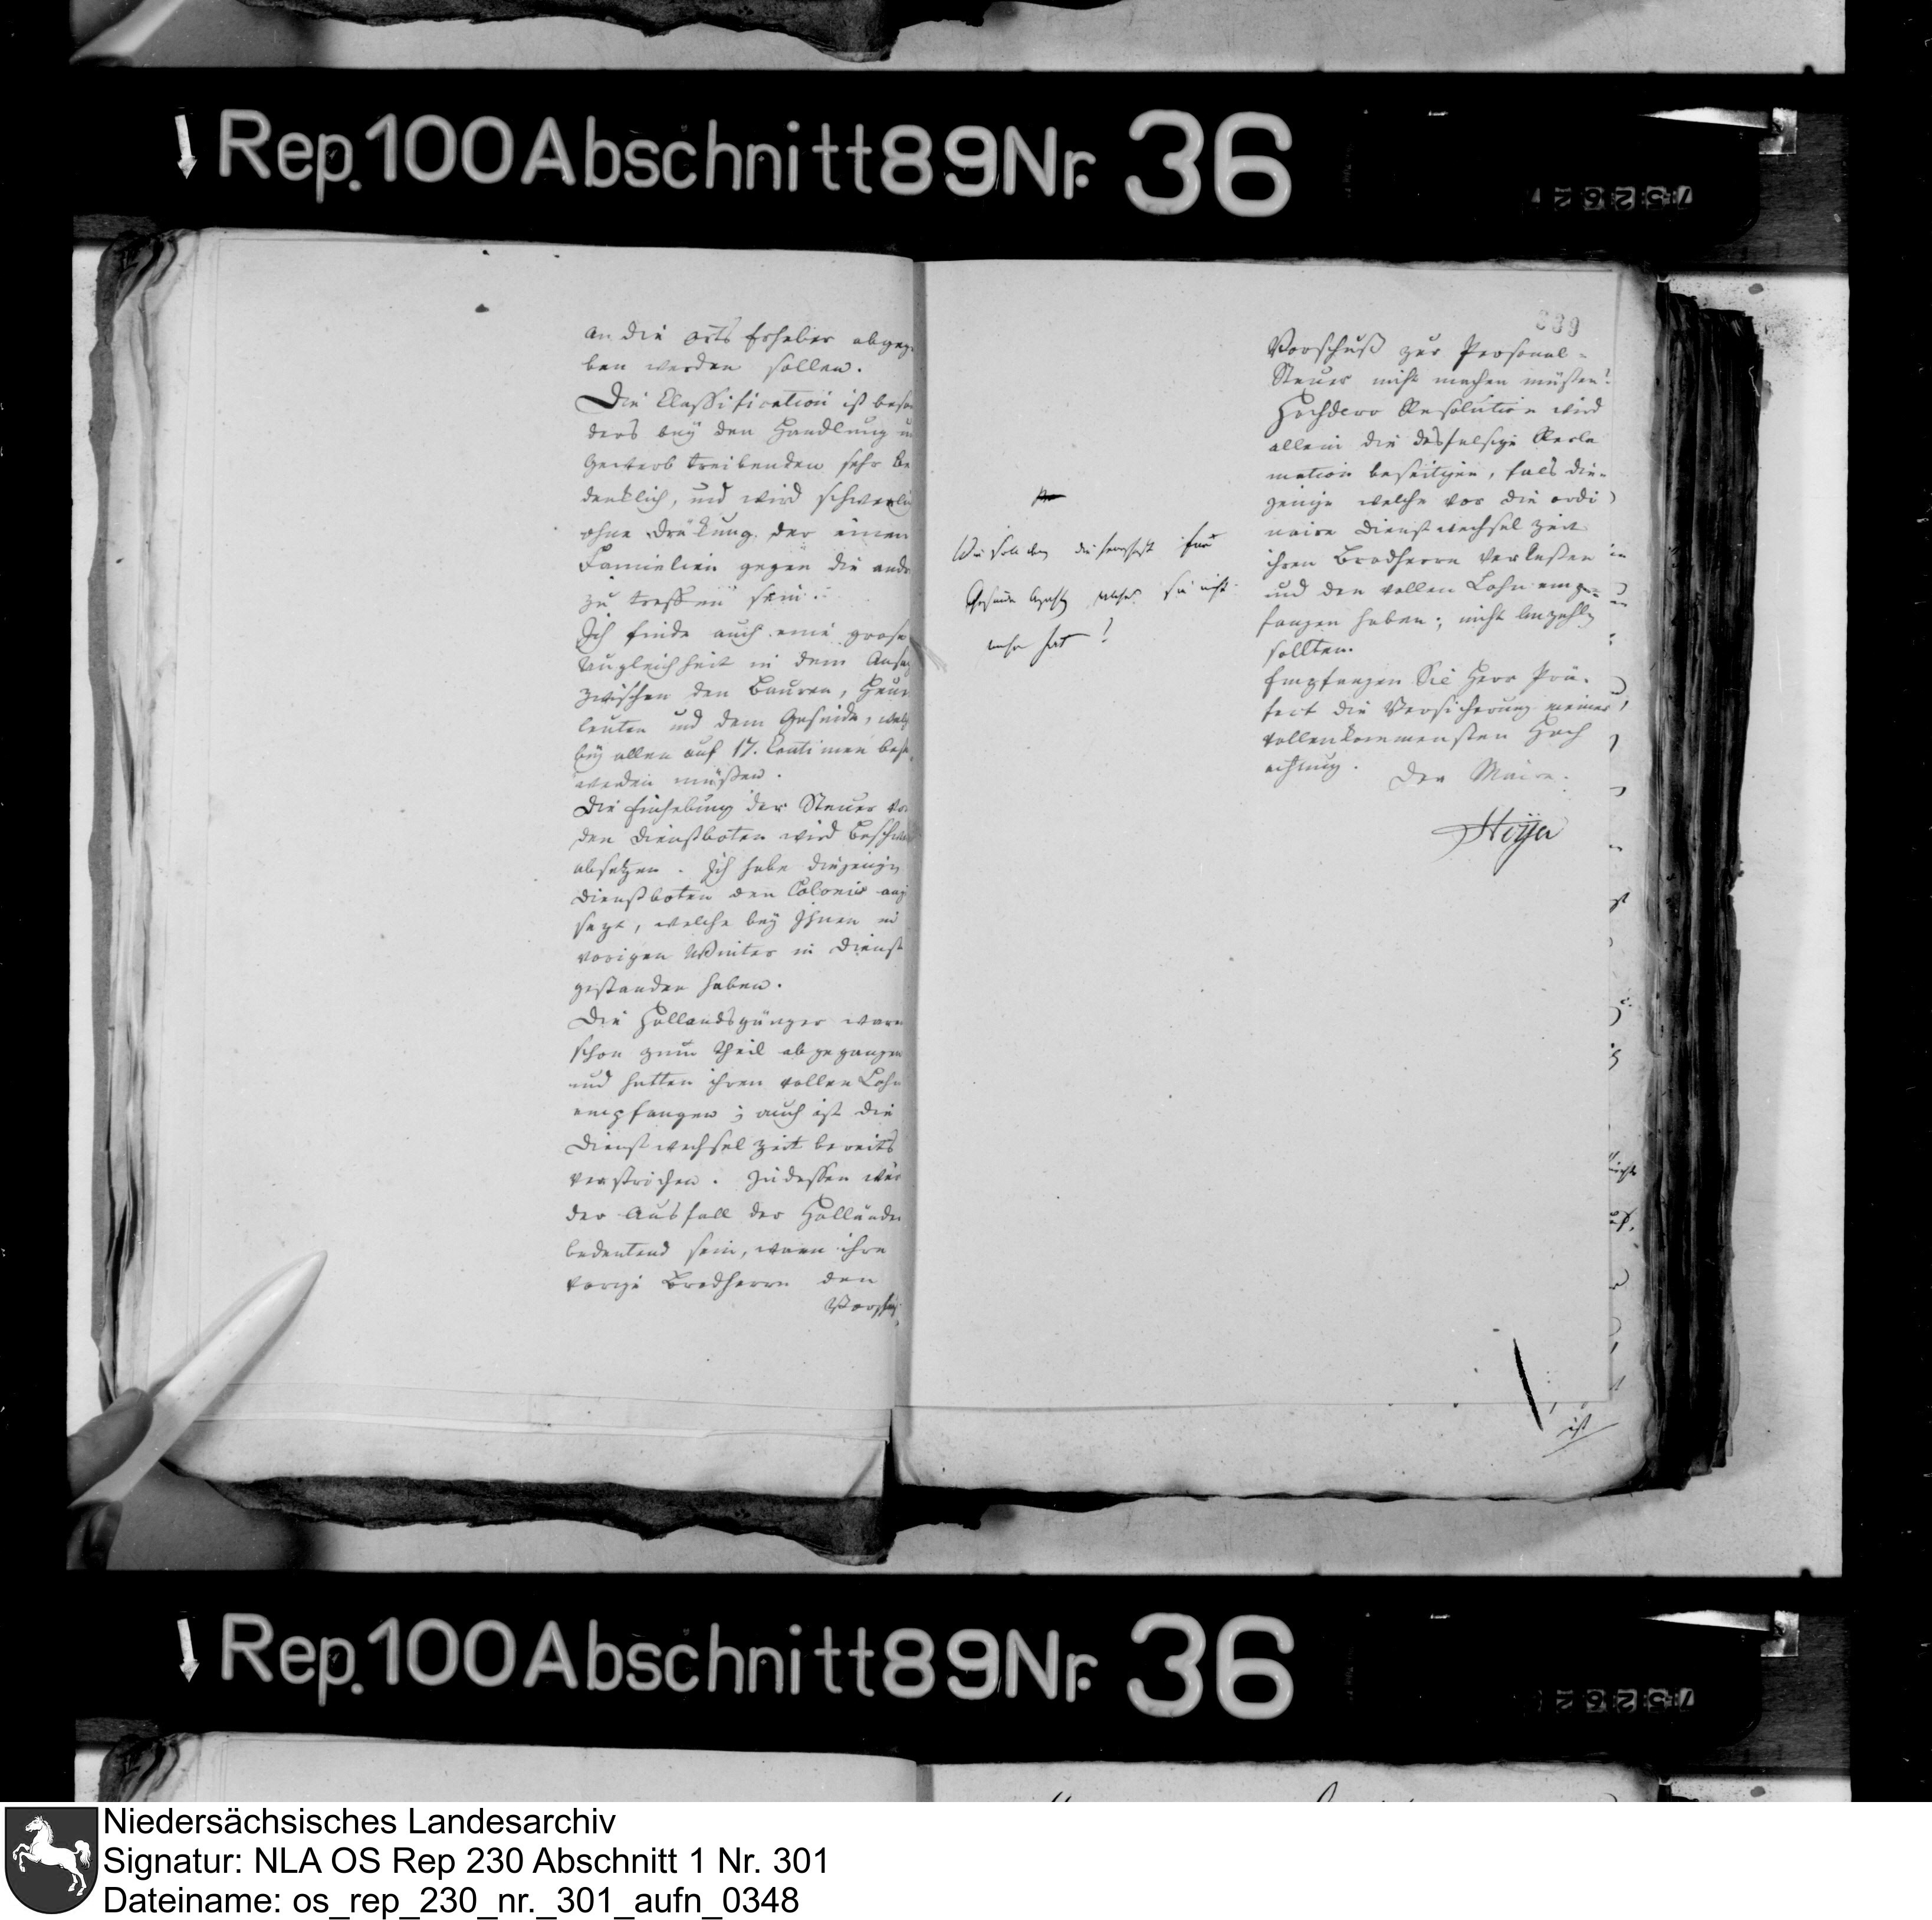 Rep. 100 Abschnitt 89 Nr. 36
75262
an die orts Erheber abgege
ben werden sollen.
Die Classification ist beson
ders bey den Handlung u
Gewerb treibenden sehr be
denklich, und wird schwerli
ohne Drükung der einen
Famielien gegen die ande
zu treffen sein.
Ich finde auch eine grose
Ungleichheit in dem Ansa
zwischen den Bauren, Heur
leuten und dem Gesinde, welch
bey allen auf 17. Centimen
werden müßen.
Die Einhebung der Steuer vo
den Dienstboten wird Beschwer
absetzen. Ich habe diejenign
Dienstboten den Colonis ang
sezt, welche bey Ihnen
vorigen Winter in Dienst
gestanden haben.
Die Hollandsgänger waren
schon zum Theil abgegangen
und hatten ihren vollen Lohn
empfangen; auch ist die
Dienstwechsel Zeit bereits
verstrichen. Indessen wür
der Ausfall der Holländer
bedeutend sein, wenn ihre
vorige Brodherrn den
Vorschuß
889
Vorschuß zur Personal-
Steuer nicht machen müßen!
Hochdero Resolution wird
allein die desfalsige Recla
mation beseitigen, falls die-
jenige welche vor die ordi
naire Dienstwechsel Zeit
ihren Brodherrn verlaßen
und den vollen Lohn emp-
fangen haben, nicht bezahln
sollten.
Empfangen Sie Herr Prä-
fect die Versicherung meiner
vollenkommensten Hoch
achtung.
Der Maire.
die Herrschaft für
Gesinde welches sie nicht
mehr hat!
ist
Rep. 100 Abschnitt 89 Nr. 36
75262
Niedersächsisches Landesarchiv
Signatur: NLA OS Rep 230 Abschnitt 1 Nr. 301
Dateiname: os_rep_230_nr._301_aufn_0348